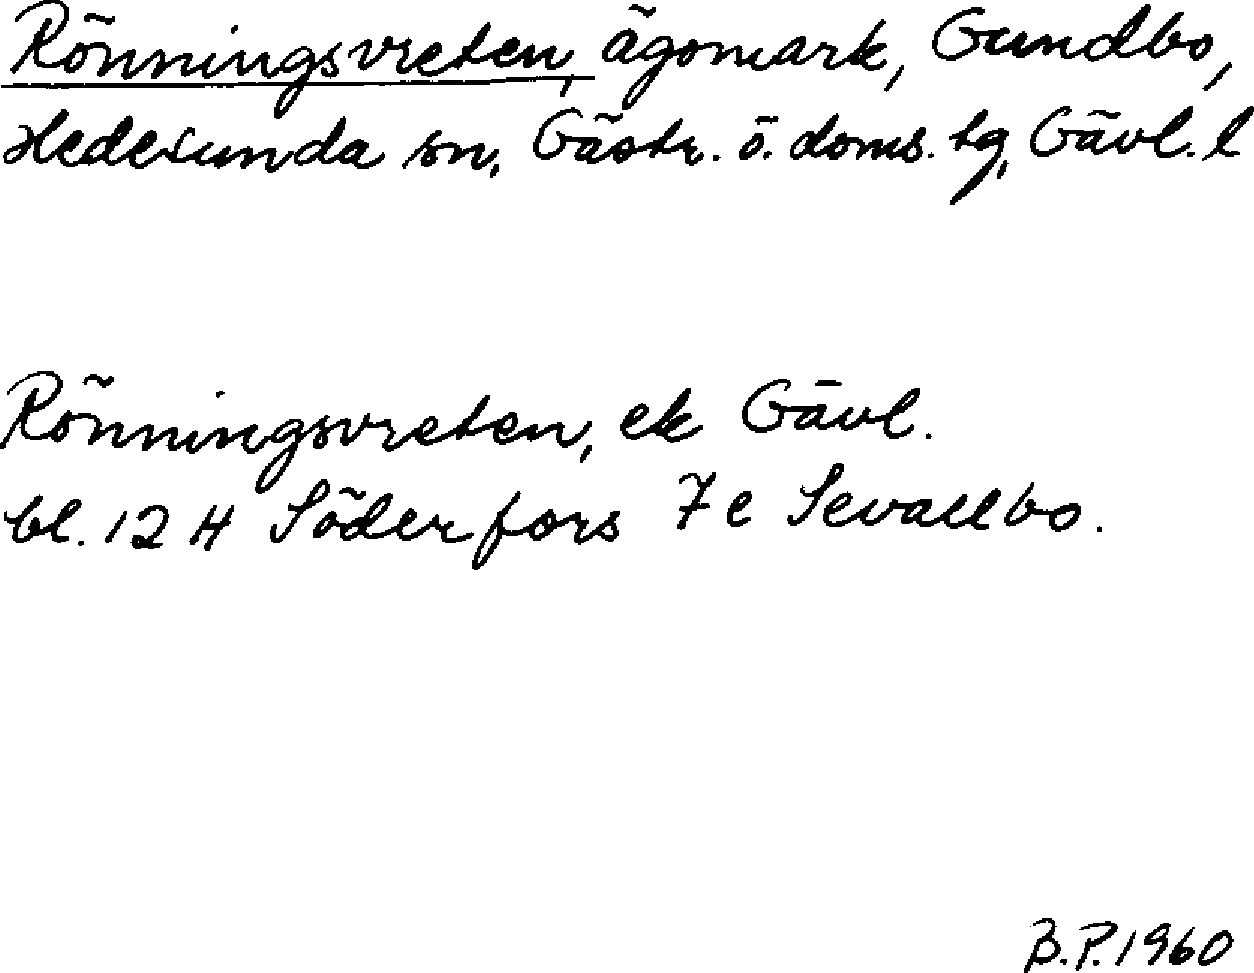 Rönningsvreten, ägomark, Gundbo,
Hedesunda sn, Gästr. ö. doms. tg, Gävl. l
Rönningsvreten, ek Gävl.
bl. 12 H Söderfors 7 e Sevallbo.
B.P. 1960